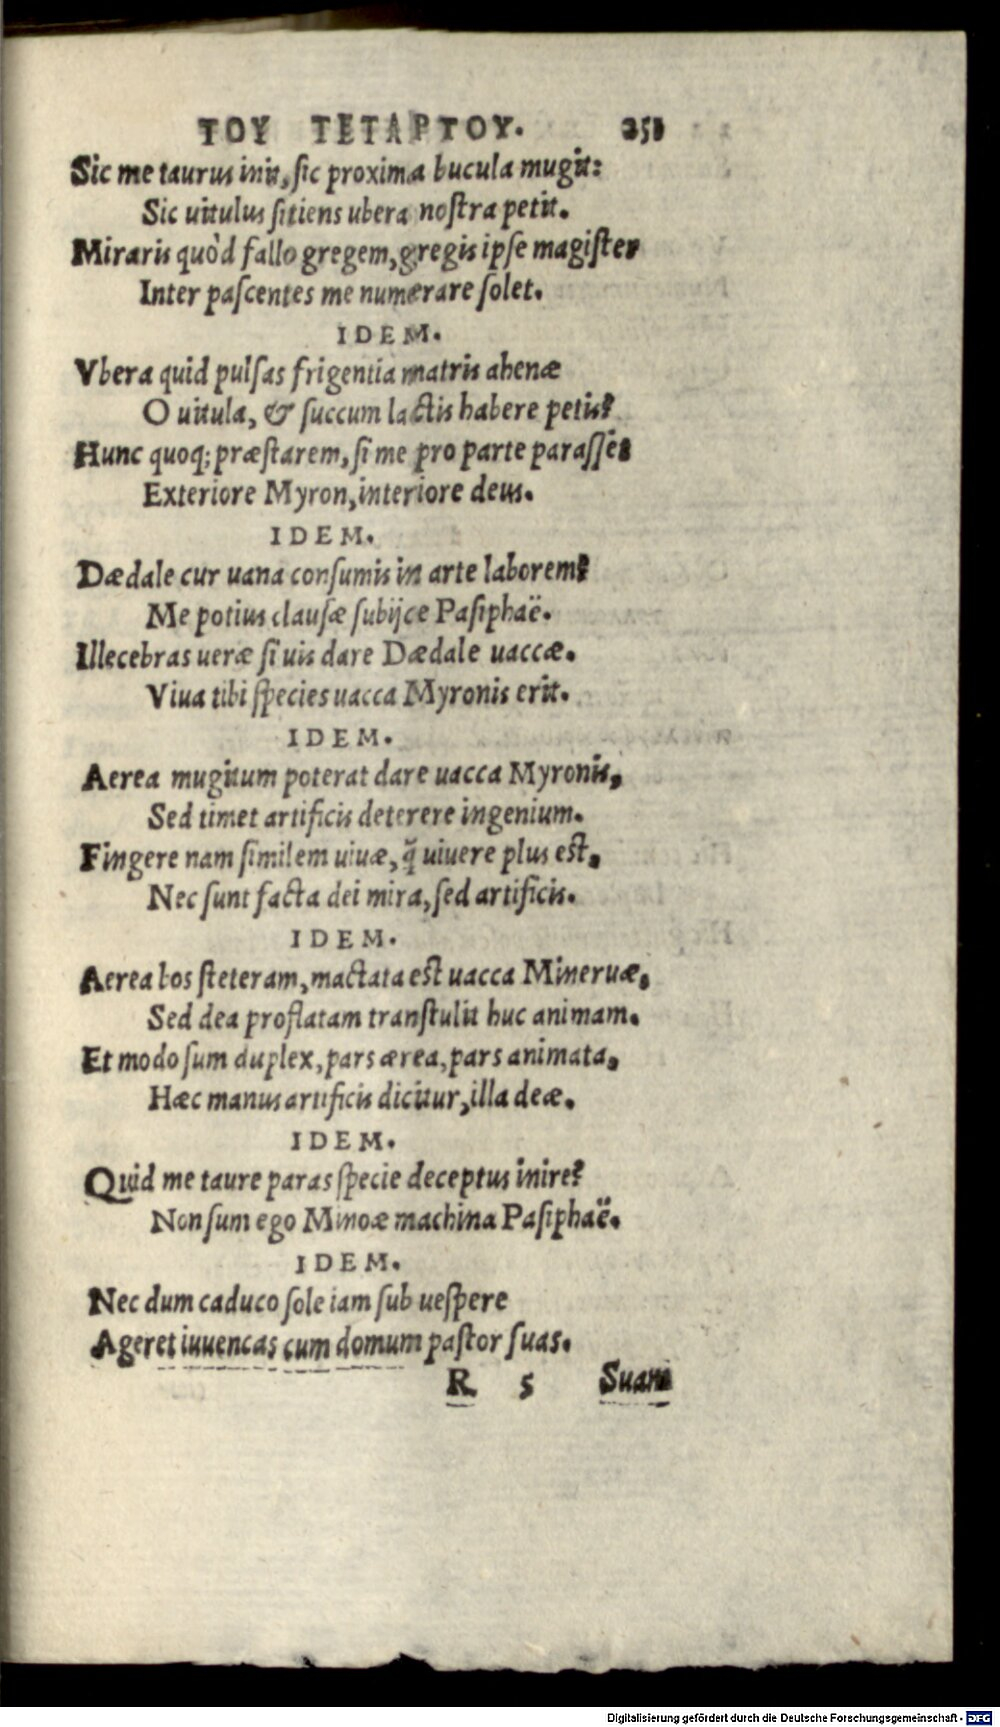 ΤΟΥ ΤΕΤΑΡΤΟΥ. 251
Sic me taurus init, sic proxima bucula mugit:
Sic uitulus sitiens ubera nostra petit.
Miraris quòd fallo gregem, gregis ipse magister
Inter pascentes me numerare solet.
IDEM.
Vbera quid pulsas frigentia matris ahenæ
O uitula, & succum lactis habere petis?
Hunc quoq; præstarem, si me pro parte parasset
Exteriore Myron, interiore deus.
IDEM.
Dædale cur uana consumis in arte laborem?
Me potius clausæ subijce Pasiphaë.
Illecebras ueræ si uis dare Dædale uaccæ.
Viua tibi species uacca Myronis erit.
IDEM.
Aerea mugitum poterat dare uacca Myronis,
Sed timet artificis deterere ingenium.
Fingere nam similem uiuæ, q̃ uiuere plus est,
Nec sunt facta dei mira, sed artificis.
IDEM.
Aerea bos steteram, mactata est uacca Mineruæ,
Sed dea proflatam transtulit huc animam.
Et modo sum duplex, pars ærea, pars animata,
Hæc manus artificis dicitur, illa deæ.
IDEM.
Quid me taure paras specie deceptus inire?
Non sum ego Minoæ machina Pasiphaë.
IDEM.
Nec dum caduco sole iam sub uespere
Ageret iuuencas cum domum pastor suas.
R 5 Suam
Digitalisierung gefördert durch die Deutsche Forschungsgemeinschaft - DFG